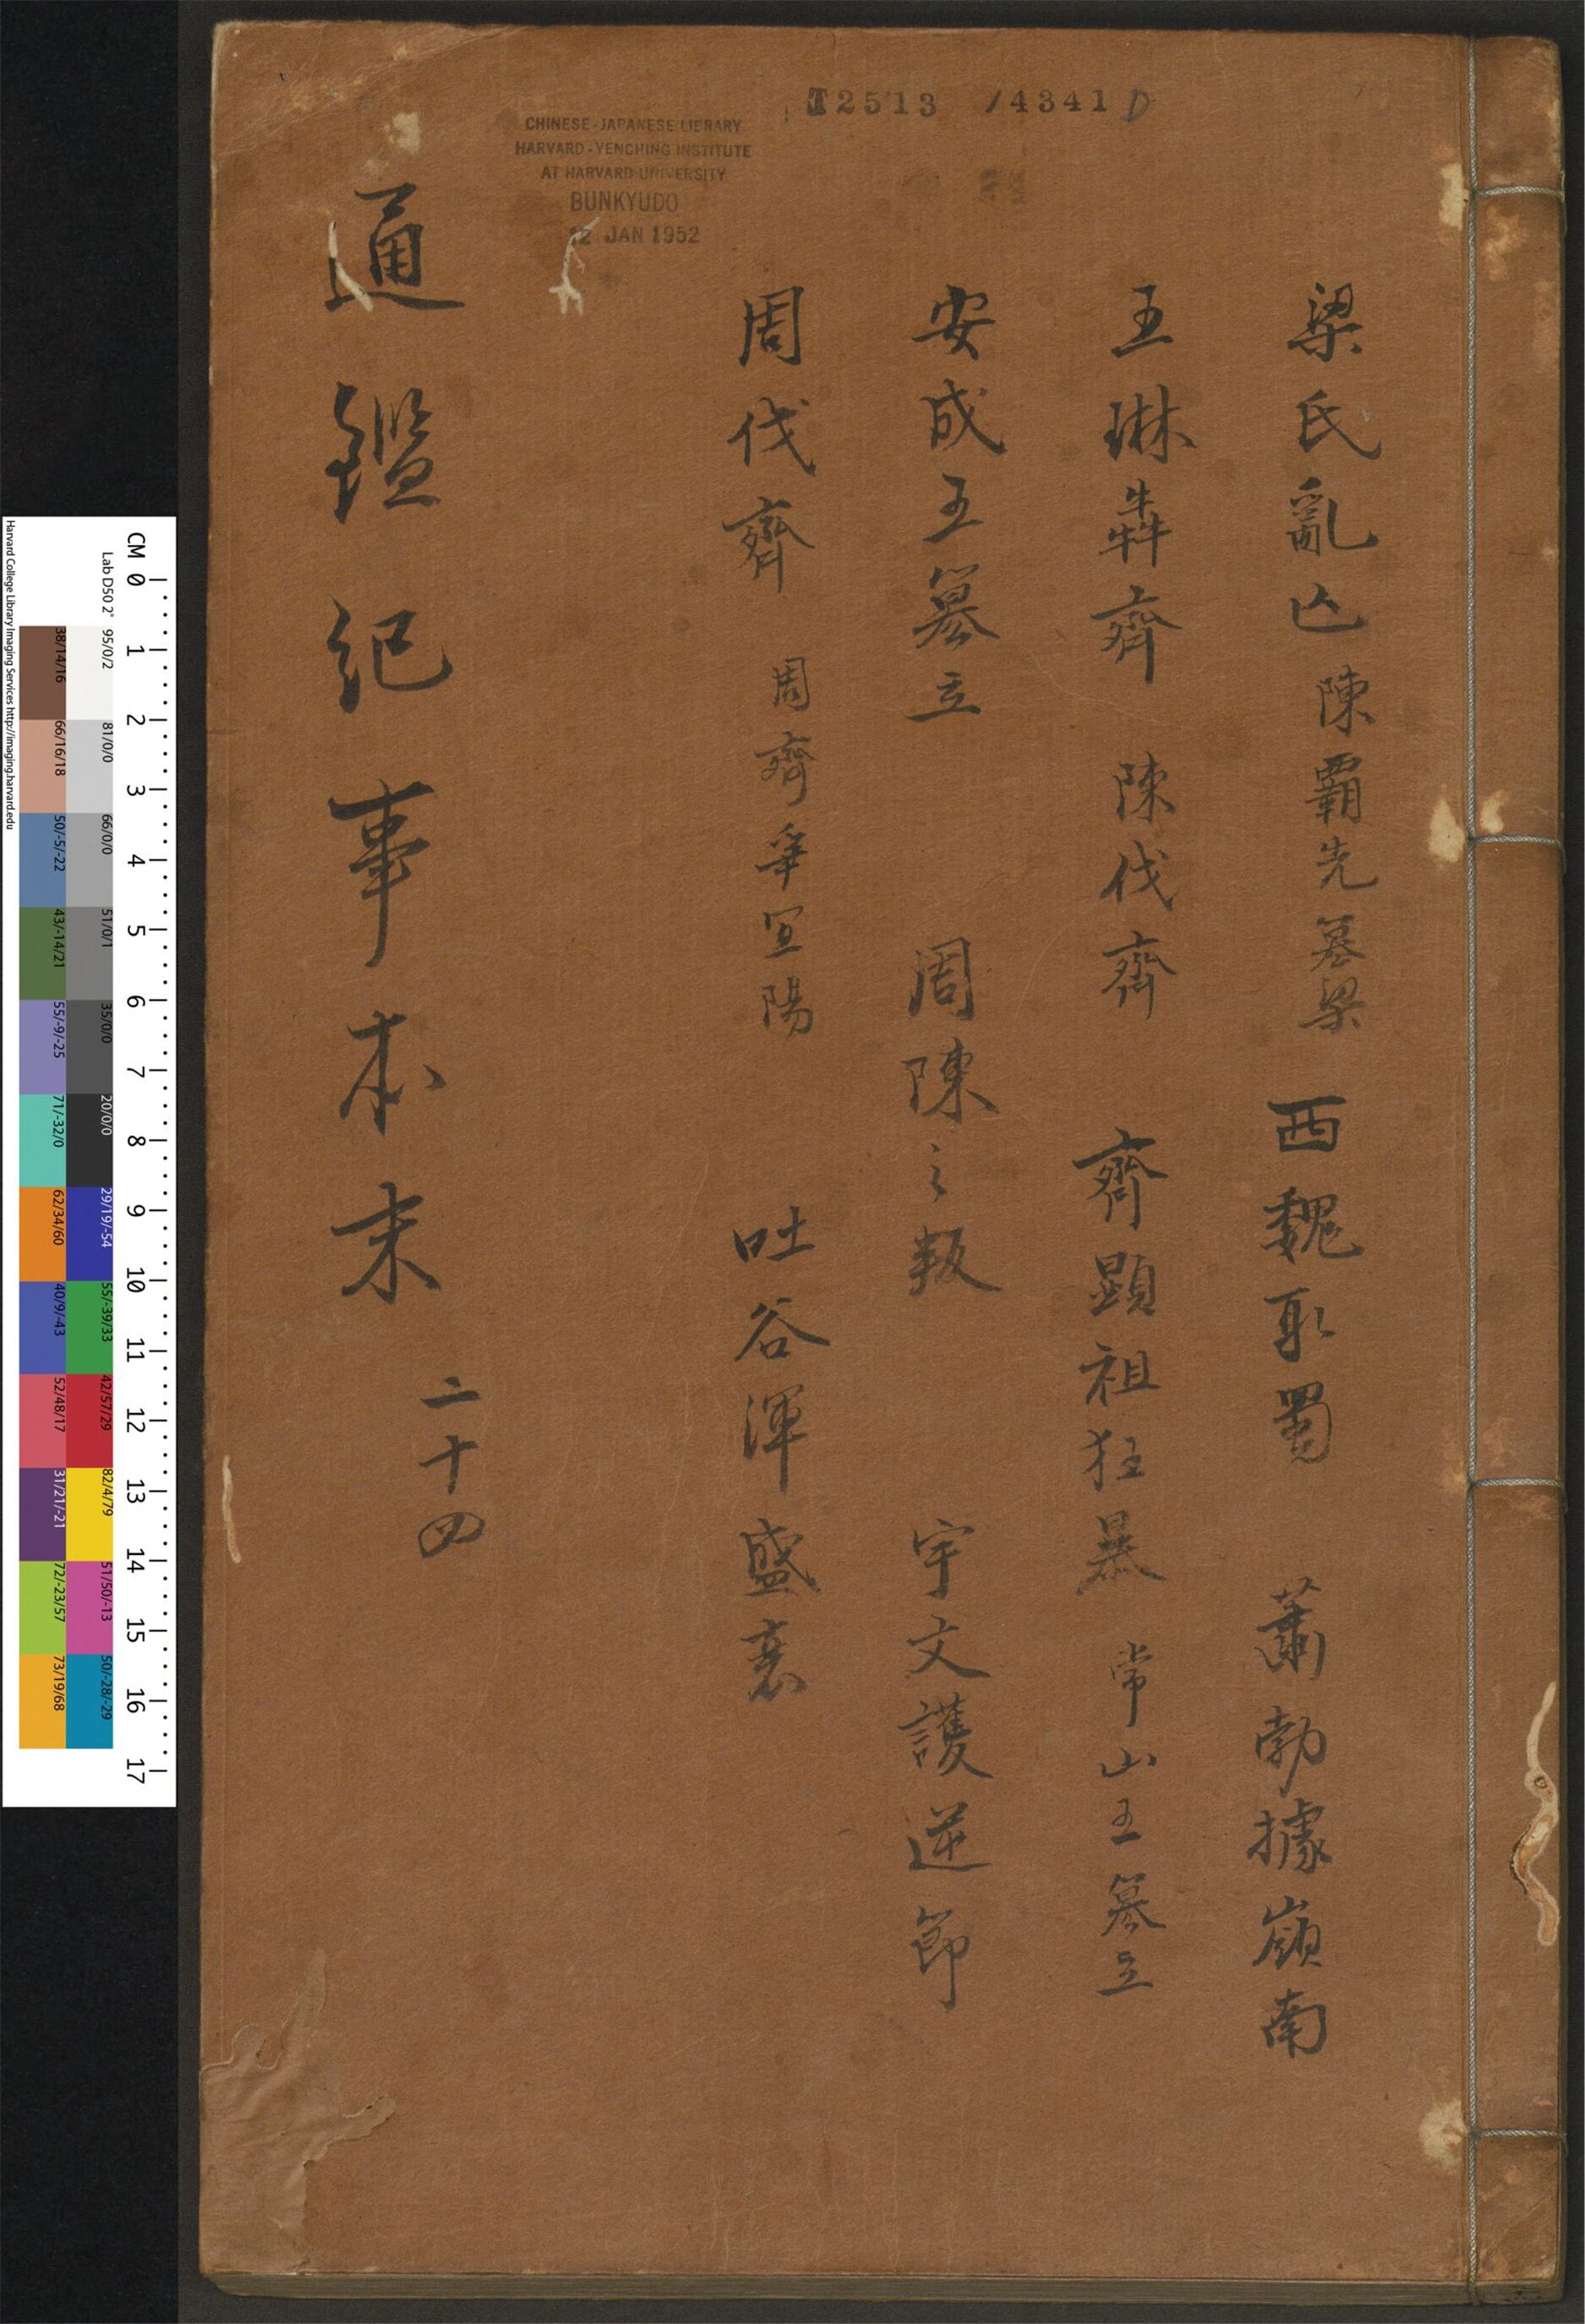 梁氏亂亡 陳霸先簒梁 西魏取蜀 蕭勃據嶺南
王琳犇齊 陳伐齊 齊顯祖狂暴 常山王簒立
安成王簒立 周陳之叛 宇文護逆節
周伐齊 周齊爭宜陽 吐谷渾盛衰
通鑑紀事本末 二十四
T2513 /4341 D
CHINESE-JAPANESE LIBRARY
HARVARD-YENCHING INSTITUTE
AT HARVARD UNIVERSITY
BUNKYUDO
12 JAN 1952
CM 0 1 2 3 4 5 6 7 8 9 10 11 12 13 14 15 16 17
Lab D50 2° 95/0/2 81/0/0 66/0/0 51/0/1 35/0/0 20/0/0 29/19/-54 55/-39/33 42/57/29 82/4/79 51/50/-13 50/-28/-29
38/14/16 66/16/18 50/-5/-22 43/-14/21 55/-9/-25 71/-32/0 62/34/60 40/9/-43 52/48/17 31/21/-21 72/-23/57 73/19/68
Harvard College Library Imaging Services http://imaging.harvard.edu